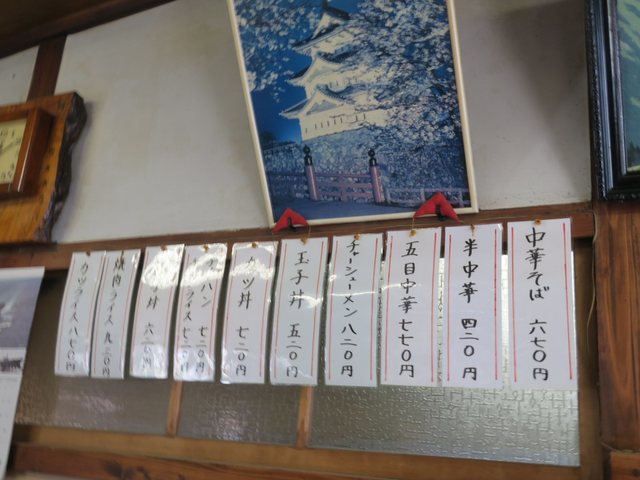 中華そば 六七〇円
半中華 四二〇円
五目中華 七七〇円
チャーシューメン 八二〇円
玉子丼 五二〇円
カツ丼 七二〇円
丼 六二〇円
ハン 七二〇円
ライス 七
焼肉ライス 九二〇円
カツライス 八七〇円